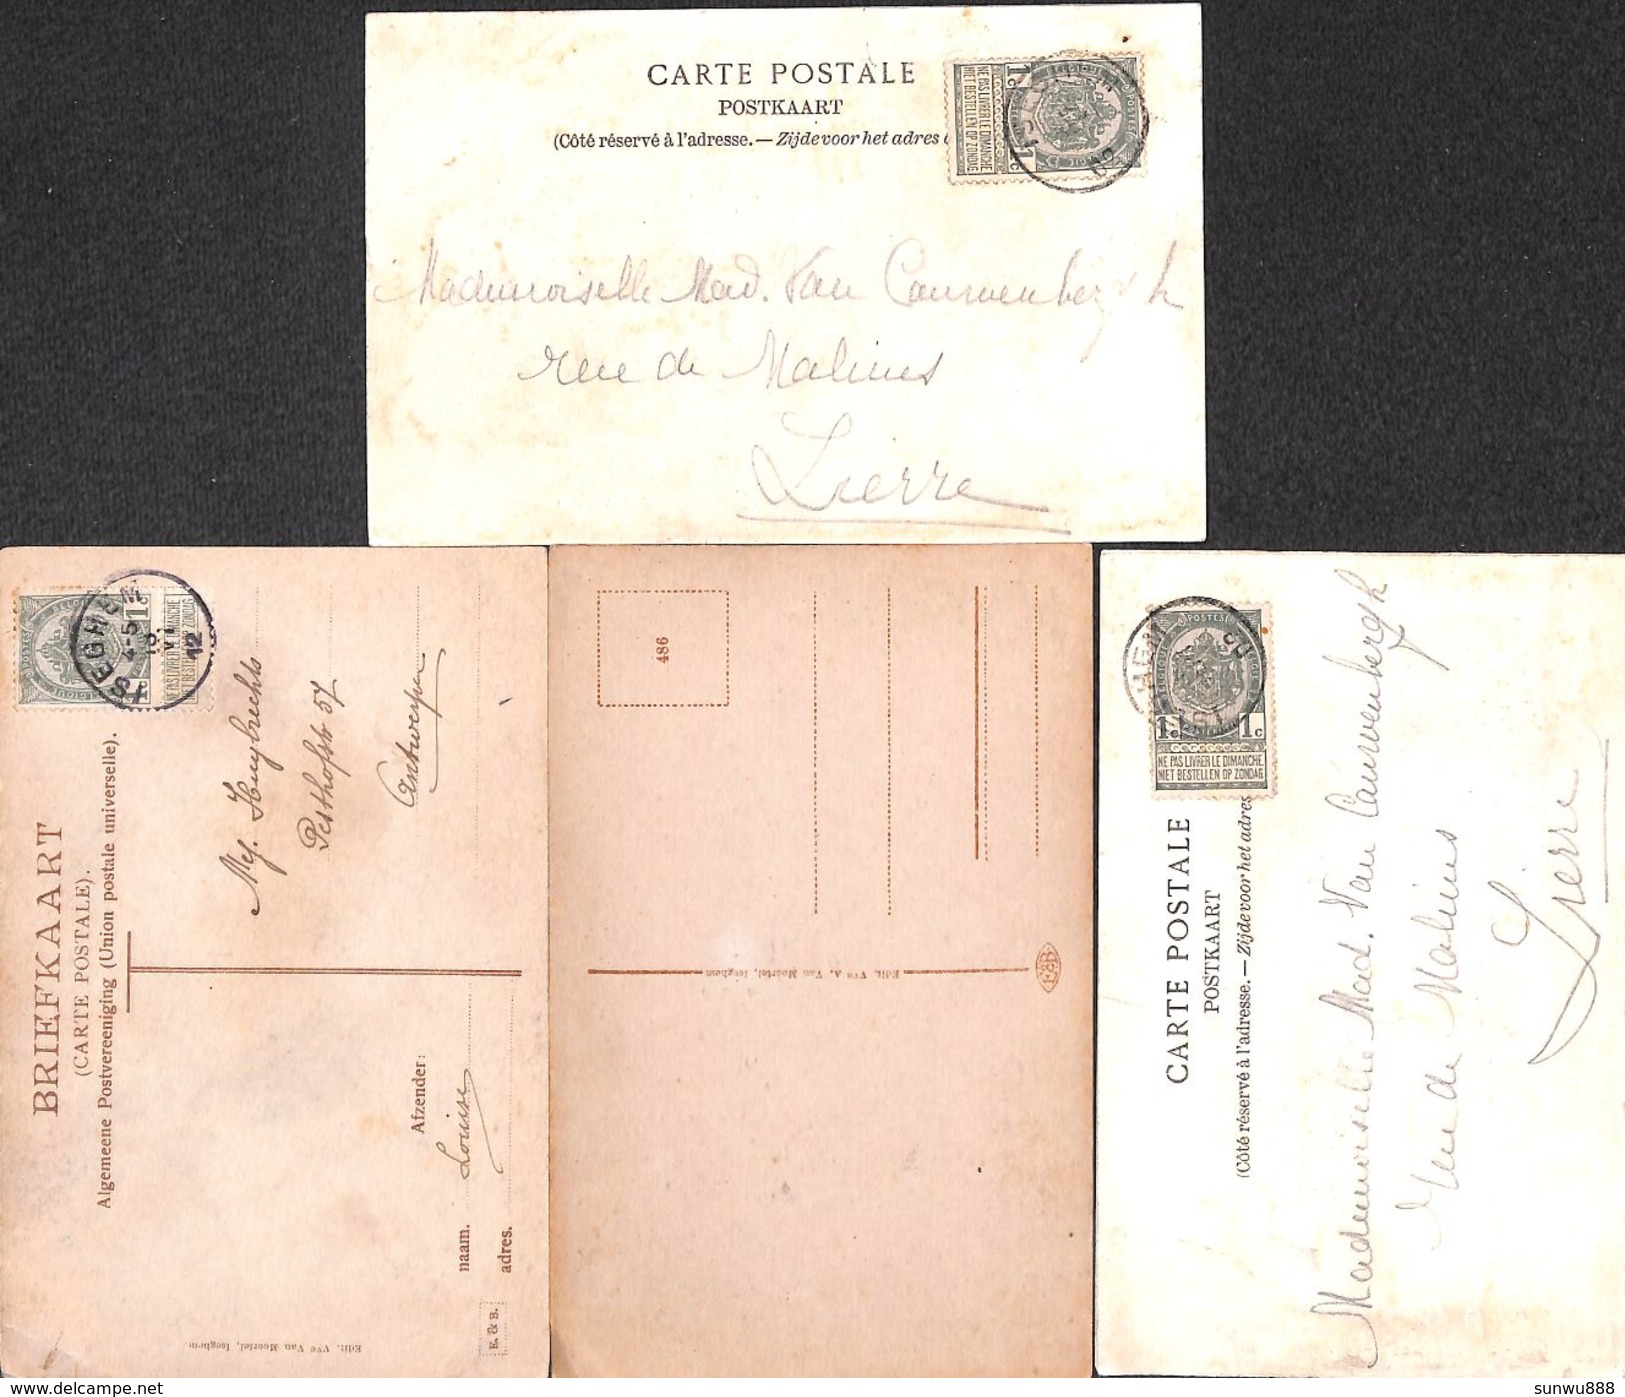 CARTE POSTALE
POSTKAART
(Côté réservé à l'adresse. — Zijde voor het adres
1c 1c
NE PAS LIVRER LE DIMANCHE
NIET BESTELLEN OP ZONDAG
Mademoiselle Mad. Van Cauwenbergh
rue de Malines
Lierre
BRIEFKAART
(CARTE POSTALE).
Algemeene Postvereeniging (Union postale universelle).
ISEGHEM
4-5
12
NE PAS LIVRER LE DIMANCHE
NIET BESTELLEN OP ZONDAG
Mej. Huybrechts
Pesthofstr 57
Antwerpen
Afzender:
naam. Louise
adres.
E. & B.
Edit. Vve Van Moortel, Iseghem
486
Edit. Vve A. Van Moortel, Iseghem
E&B
POSTES
1c 1c
NE PAS LIVRER LE DIMANCHE
NIET BESTELLEN OP ZONDAG
CARTE POSTALE
POSTKAART
(Côté réservé à l'adresse. — Zijde voor het adres
Mademoiselle Mad. Van Cauwenbergh
Rue de Malines
Lierre
delcampe.net
sunwu888